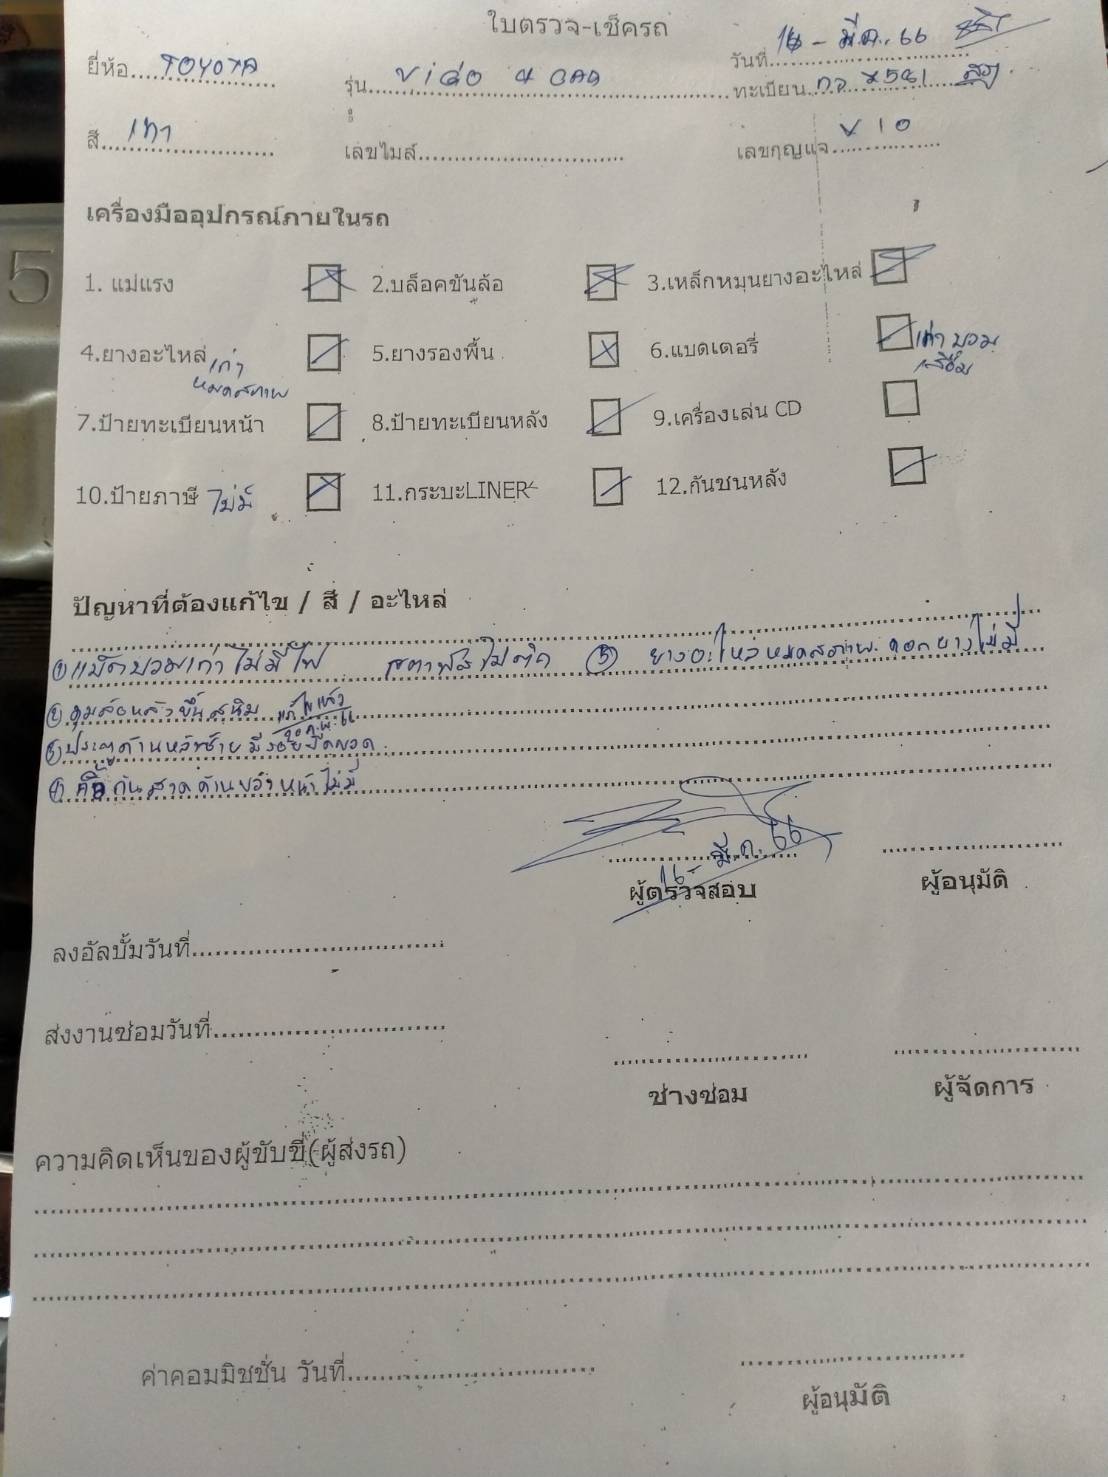 ใบตรวจ-เช็ครถ
ยี่ห้อ TOYOTA รุ่น วีโก้ 4 CAB วันที่ 16 - มี.ค. 66
ทะเบียน
สี เทา เลขไมล์ เลขกุญแจ V 10
เครื่องมืออุปกรณ์ภายในรถ
1. แม่แรง 2.บล็อคขันล้อ 3.เหล็กหมุนยางอะไหล่
4.ยางอะไหล่ เก่า หมดสภาพ 5.ยางรองพื้น 6.แบตเตอรี่ เก่า บวม เสื่อม
7.ป้ายทะเบียนหน้า 8.ป้ายทะเบียนหลัง 9.เครื่องเล่น CD
10.ป้ายภาษี ไม่มี 11.กระบะLINER 12.กันชนหลัง
ปัญหาที่ต้องแก้ไข / สี / อะไหล่
① แบ็ตบวมเก่า ไม่มีไฟ สตาทส์ไม่ติด ⑤ ยางอะไหล่หมดสภาพ ดอกยางไม่มี
② ดุมล้อหลังขึ้นสนิม แก้ไขแล้ว
③ ประตูด้านหลังซ้าย มีรอยขีดขวด
④ คิ้วกันสาดด้านขวาหน้าไม่มี
16 - มี.ค. 66
ผู้ตรวจสอบ ผู้อนุมัติ
ลงอัลบั้มวันที่
ส่งงานซ่อมวันที่
ช่างซ่อม ผู้จัดการ
ความคิดเห็นของผู้ขับขี่(ผู้ส่งรถ)
ค่าคอมมิชชั่น วันที่
ผู้อนุมัติ